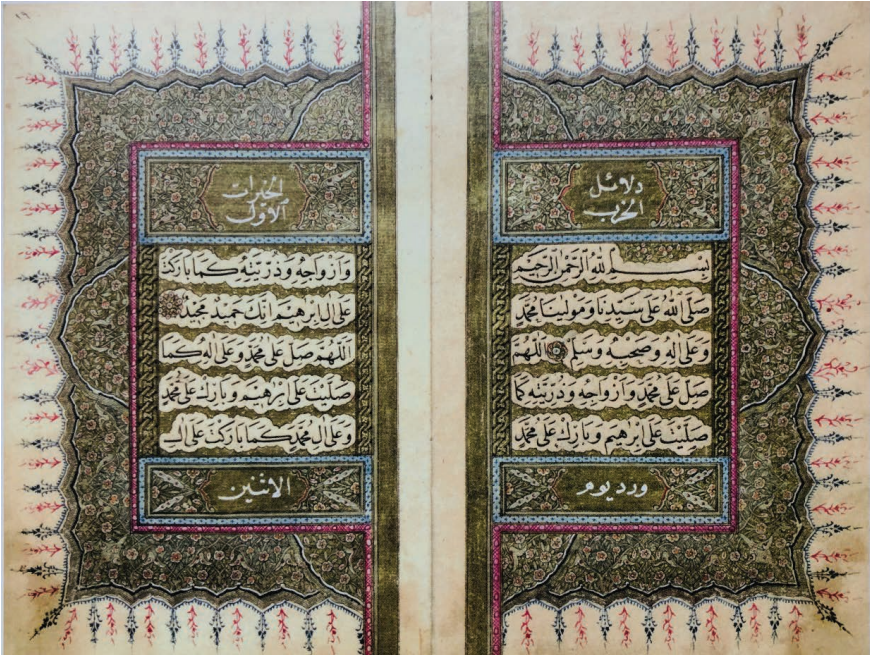 دلائل
الحزب
بسم الله الرحمن الرحيم
صَلَّى اللهُ عَلَى سَيِّدِنَا وَمَوْلَينَا مُحَمَّدٍ
وَعَلَى اٰلِهِ وَصَحْبِهِ وَسَلِّمْ اَللّٰهُمَّ
صَلِّ عَلَى مُحَمَّدٍ وَاَزْوَاجِهِ وَذُرِّيَّتِهِ كَمَا
صَلَّيْتَ عَلَى اِبْرٰهِيمَ وَبَارِكْ عَلَى مُحَمَّدٍ
ورد يوم
الخيرات
الاول
وَاَزْوَاجِهِ وَذُرِّيَّتِهِ كَمَا بَارَكْتَ
عَلَى اٰلِ اِبْرٰهِيمَ اِنَّكَ حَمِيدٌ مَجِيدٌ
اَللّٰهُمَّ صَلِّ عَلَى مُحَمَّدٍ وَعَلَى اٰلِهِ كَمَا
صَلَّيْتَ عَلَى اِبْرٰهِيمَ وَبَارِكْ عَلَى مُحَمَّدٍ
وَعَلَى اٰلِ مُحَمَّدٍ كَمَا بَارَكْتَ عَلَى اٰلِ
الاثنين